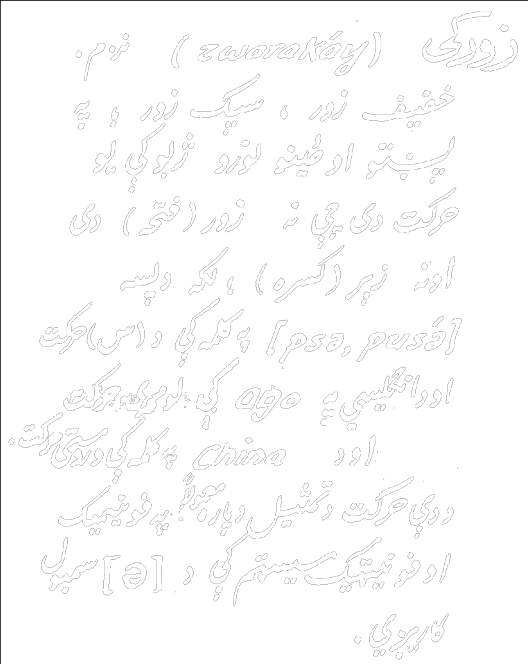 زورکی (zwarakáy) نر. م.
خفیف زور ، سپک زور ؛ په
پښتو او ځینو نورو ژبو کې یو
حرکت دی چې نه زور (فتحه) دی
او نه زېر (کسره) ؛ لکه د پسه
[psə, pusə́] په کلمه کې د (س) حرکت
او د انګلیسي په ago کې لومړی حرکت
او د china په کلمه کې وروستی حرکت.
د دې حرکت د تمثیل دپاره معمولاً په فونیمیک
او فونیټیک سیسټم کې د [ə] سمبول
کارېږي .